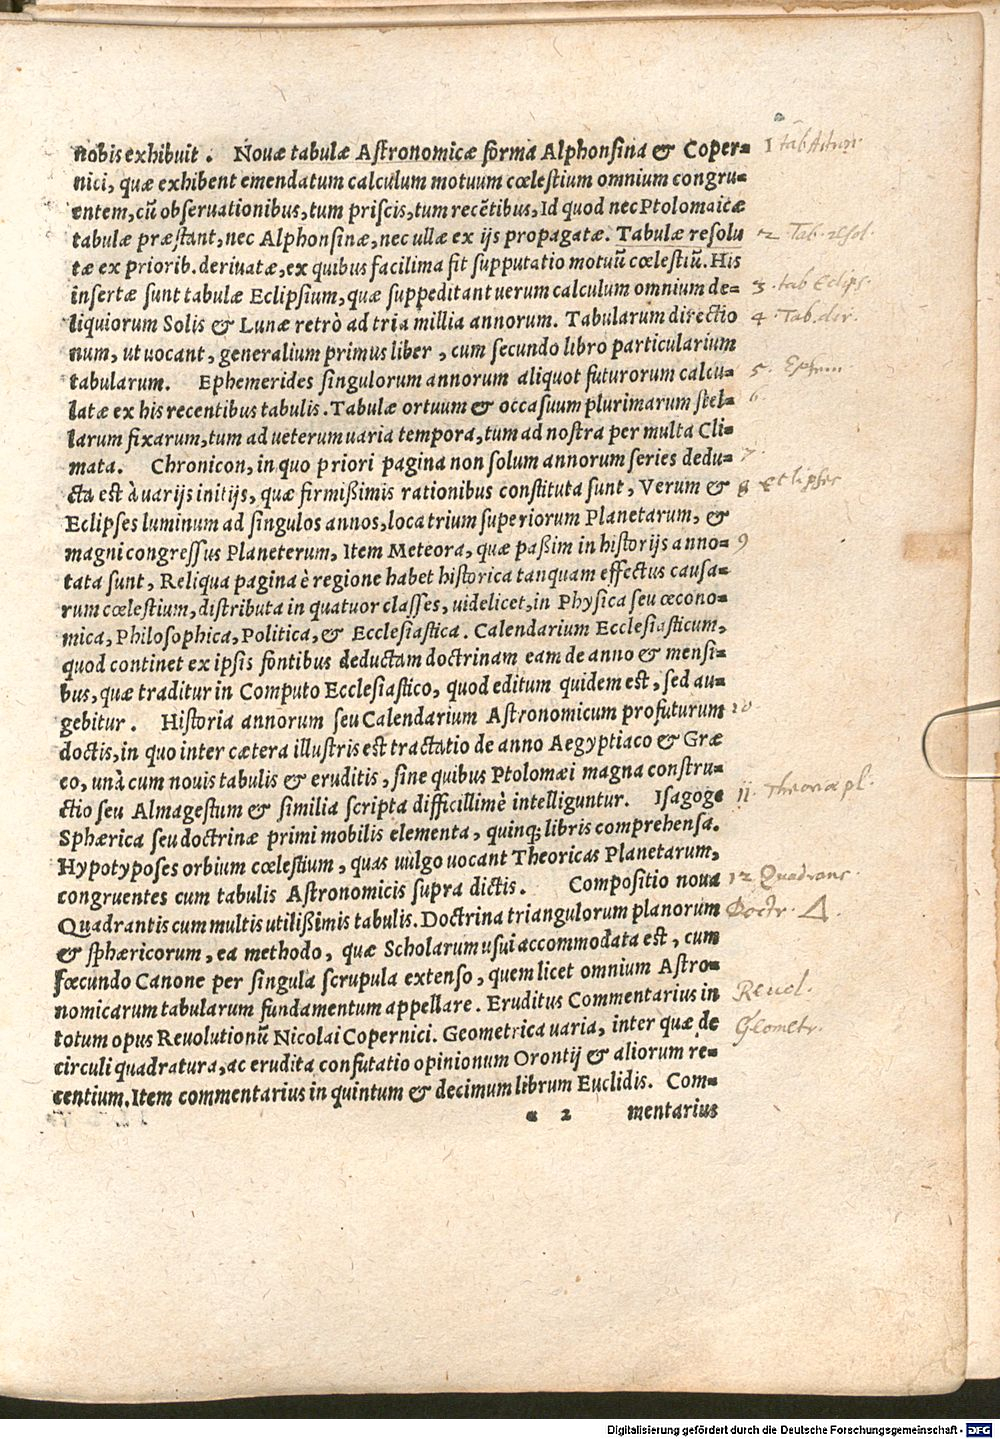 nobis exhibuit. Nouæ tabulæ Astronomicæ forma Alphonsina & Coper=
nici, quæ exhibent emendatum calculum motuum cœlestium omnium congru=
entem, cū obseruationibus, tum priscis, tum recētibus, Id quod nec Ptolomaicæ
tabulæ præstant, nec Alphonsinæ, nec ullæ ex ijs propagatæ. Tabulæ resolu
tæ ex priorib. deriuatæ, ex quibus facilima fit supputatio motuū cœlestiū. His
insertæ sunt tabulæ Eclipsium, quæ suppeditant uerum calculum omnium de=
liquiorum Solis & Lunæ retrò ad tria millia annorum. Tabularum directio
num, ut uocant, generalium primus liber, cum secundo libro particularium
tabularum. Ephemerides singulorum annorum aliquot futurorum calcu=
latæ ex his recentibus tabulis. Tabulæ ortuum & occasuum plurimarum stel=
larum fixarum, tum ad ueterum uaria tempora, tum ad nostra per multa Cli=
mata. Chronicon, in quo priori pagina non solum annorum series dedu=
cta est à uarijs initijs, quæ firmißimis rationibus constituta sunt, Verum &
Eclipses luminum ad singulos annos, loca trium superiorum Planetarum, &
magni congressus Planeterum, Item Meteora, quæ paßim in historijs anno=
tata sunt, Reliqua pagina è regione habet historica tanquam effectus causa=
rum cœlestium, distributa in quatuor classes, uidelicet, in Physica seu œcono=
mica, Philosophica, Politica, & Ecclesiastica. Calendarium Ecclesiasticum,
quod continet ex ipsis fontibus deductam doctrinam eam de anno & mensi=
bus, quæ traditur in Computo Ecclesiastico, quod editum quidem est, sed au=
gebitur. Historia annorum seu Calendarium Astronomicum profuturum
doctis, in quo inter cætera illustris est tractatio de anno Aegyptiaco & Græ
co, unà cum nouis tabulis & eruditis, sine quibus Ptolomæi magna constru=
ctio seu Almagestum & similia scripta difficillimè intelliguntur. Isagoge
Sphærica seu doctrinæ primi mobilis elementa, quinq; libris comprehensa.
Hypotyposes orbium cœlestium, quas uulgo uocant Theoricas Planetarum,
congruentes cum tabulis Astronomicis supra dictis. Compositio noua
Quadrantis cum multis utilißimis tabulis. Doctrina triangulorum planorum
& sphæricorum, ea methodo, quæ Scholarum usui accommodata est, cum
fœcundo Canone per singula scrupula extenso, quem licet omnium Astro=
nomicarum tabularum fundamentum appellare. Eruditus Commentarius in
totum opus Reuolutionū Nicolai Copernici. Geometrica uaria, inter quæ de
circuli quadratura, ac erudita confutatio opinionum Orontij & aliorum re=
centium. Item commentarius in quintum & decimum librum Euclidis. Com=
a 2 mentarius
1 tab Astron
2 Tab. resol.
3. tab Eclips.
4 Tab. dir.
5. Ephem
6.
7.
8 eclipses
9
10.
11. Theoricæ pl.
12 Quadrans.
Doctr. Δ.
Reuol.
Geometr.
Digitalisierung gefördert durch die Deutsche Forschungsgemeinschaft - DFG